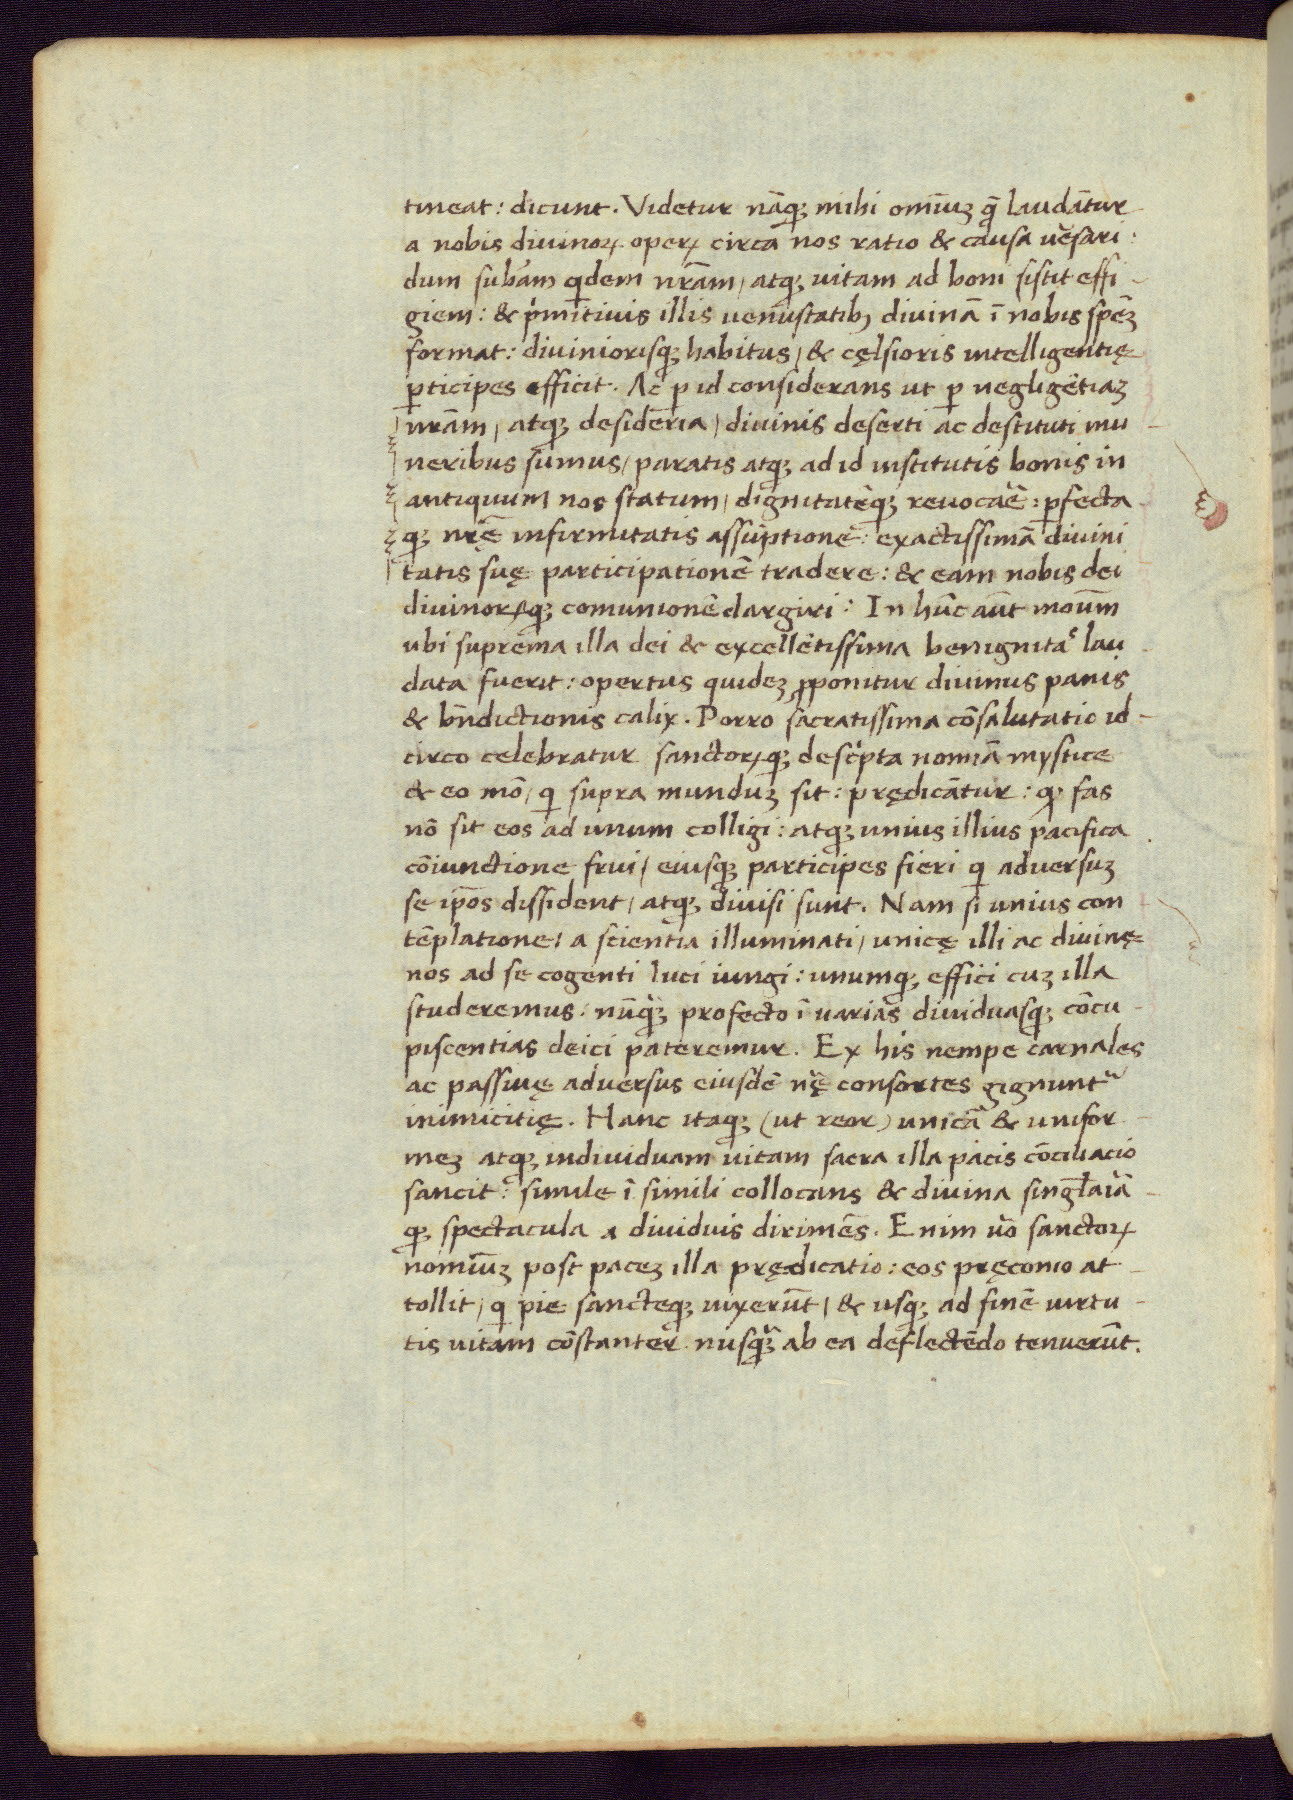 tineat: dicunt. Videtur nāq; mihi omīuꝫ q̄ laudātur
a nobis divinoꝝ operꝝ circa nos ratio & causa ūesari:
dum subām qdem nrām, atq; vitam ad boni sistit effi-
giem: & pͥmitivis illis venustatibꝫ divinā ī nobis spēꝫ
format: diviniorisq; habitus, & cęlsioris intelligentię
ꝑticipes efficit. Ac p id considerans ut ꝑ negligētiaꝫ
nrām, atq; desideria, divinis deserti ac destituti mu
neribus sumus, paratis atq; ad id institutis bonis in
antiquum nos statum, dignitatēq; revocaē: ꝑfecta-
q; nrę̄ infirmitatis assūptionē: exactissimā divini
tatis suę participationē tradere: & eam nobis dei
divinoꝝq; comunionē largiri: In hūc aūt moūm
ubi suprema illa dei & excellētissima benignitaˢ lau-
data fuerit: opertus quideꝫ ꝓponitur divinus panis
& bn̄dictionis calix. Porro sacratissima cōsalutatio id-
circo celebratur sanctoꝝq; descͥpta nomīā mystice
& eo mō, q supra munduꝫ sit: prędicātur: q; fas
nō sit eos ad unum colligi: atq; unius illius pacifica
cōiunctione frui, eiusq; participes fieri q adversuꝫ
se ip̄os dissident, atq; divisi sunt. Nam si unius con
tēplatione, a scientia illuminati, unicę illi ac divinę
nos ad se cogenti luci iungi: unumq; effici cuꝫ illa
studeremus: nūq̄ꝫ profecto ī varias dividuasq; cōcu-
piscentias deici pateremur. Ex his nempe carnales
ac passivę adversus eiusdē nr̄ę consortes gignuntᷣ
inimicitię. Hanc itaq; (ut reor) unicā & unifor-
meꝫ atq; individuam vitam sacra illa pacis cōciliatio
sancit: simile ī simili collocans & divina singlāiā-
q; spectacula a dividuis dirimēs. Enim ūo sanctoꝝ
nomīuꝫ post paceꝫ illa prędicatio: eos pręconio at-
tollit, q pie sancteq; vixerūt, & usq; ad finē virtu-
tis vitam cōstanter nusq̄ꝫ ab ea deflectēdo tenuerūt.